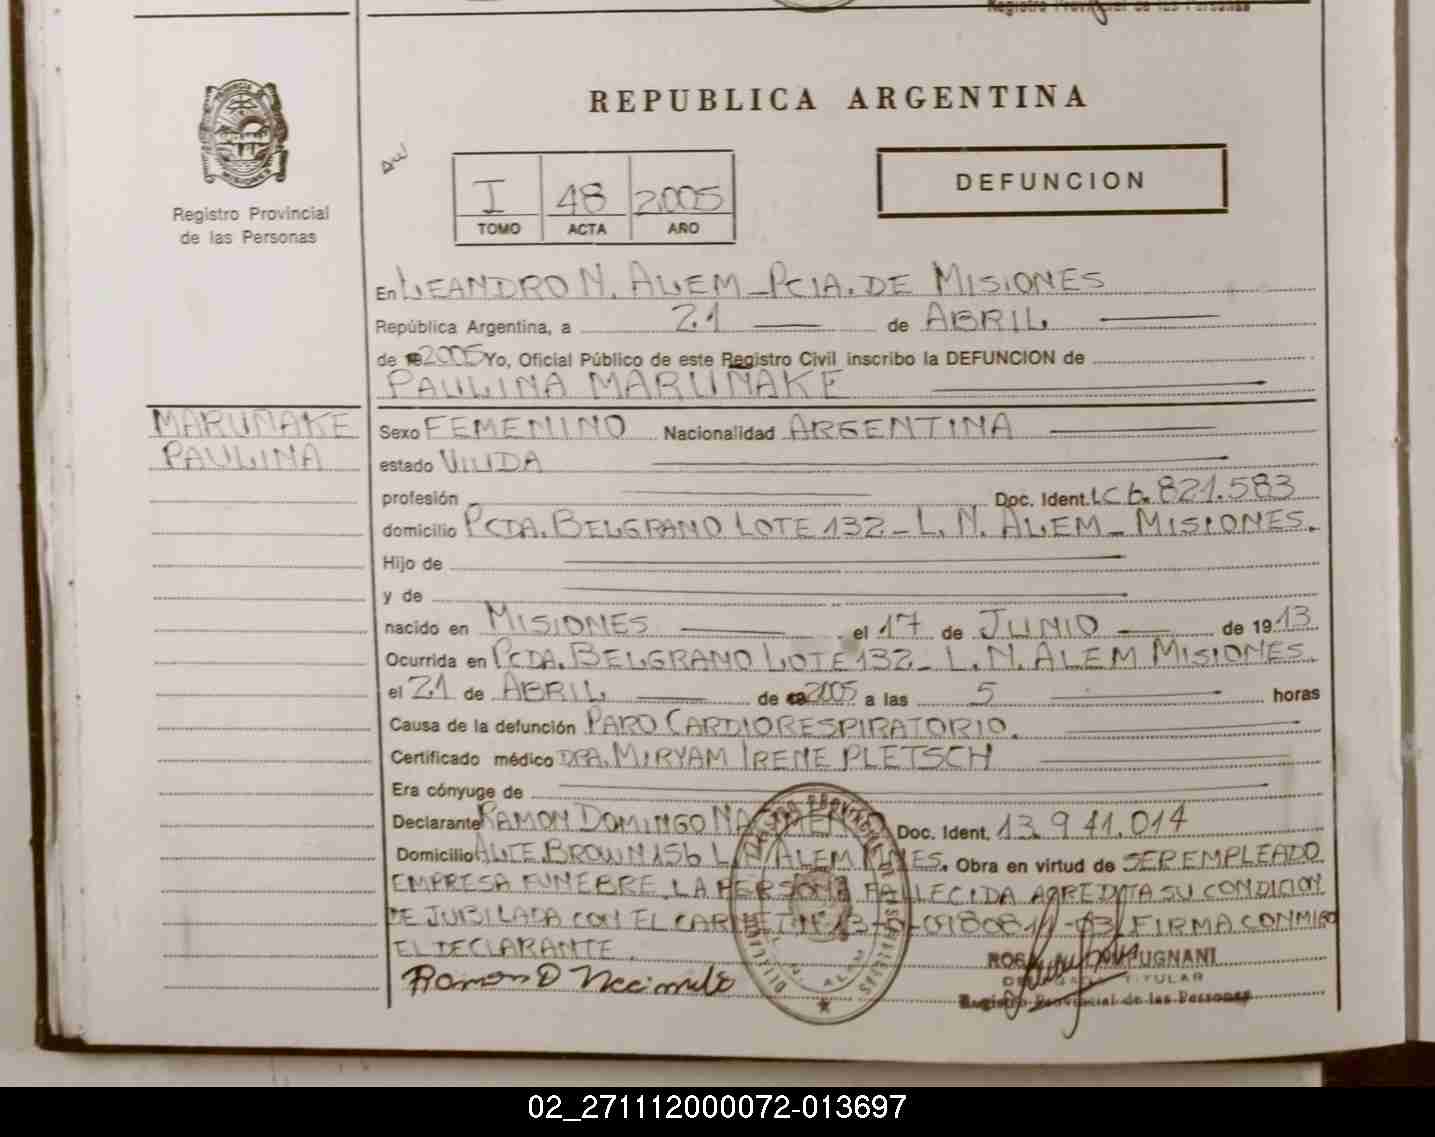 Registro Provincial de las Personas
REPUBLICA ARGENTINA
PROVINCIA
MISIONES
Registro Provincial
de las Personas
I 48 2.005
TOMO ACTA AÑO
DEFUNCION
En LEANDRO N. ALEM - PCIA. DE MISIONES
República Argentina, a 21 de ABRIL
de 2005 Yo, Oficial Público de este Registro Civil inscribo la DEFUNCION de
PAULINA MARUÑAKE
MARUÑAKE
PAULINA
Sexo FEMENINO Nacionalidad ARGENTINA
estado VIUDA
profesión Doc. Ident. LC 6.821.583
domicilio PCDA. BELGRANO LOTE 132 - L. N. ALEM - MISIONES.
Hijo de
y de
nacido en MISIONES el 17 de JUNIO de 1913
Ocurrida en PCDA. BELGRANO LOTE 132 - L. N. ALEM MISIONES
el 21 de ABRIL de 2005 a las 5 horas
Causa de la defunción PARO CARDIORESPIRATORIO.
Certificado médico DRA. MIRYAM IRENE PLETSCH
Era cónyuge de
Declarante RAMON DOMINGO Doc. Ident. 13.941.014
Domicilio ALTE. BROWN 156 L. N. ALEM MNES. Obra en virtud de SER EMPLEADO
EMPRESA FUNEBRE. LA PERSONA FALLECIDA ACREDITA SU CONDICION
DE JUBILADA CON EL CARNET Nº FIRMA CONMIGO
EL DECLARANTE.
Ramon D
TITULAR
Registro Provincial de las Personas
02_271112000072-013697